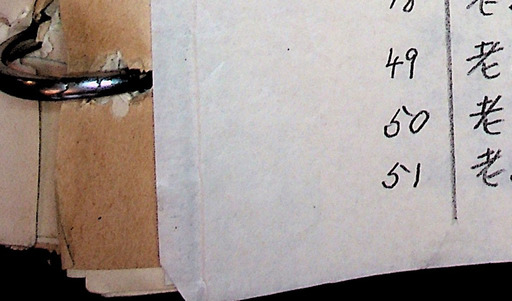 49 老
50 老
51 老